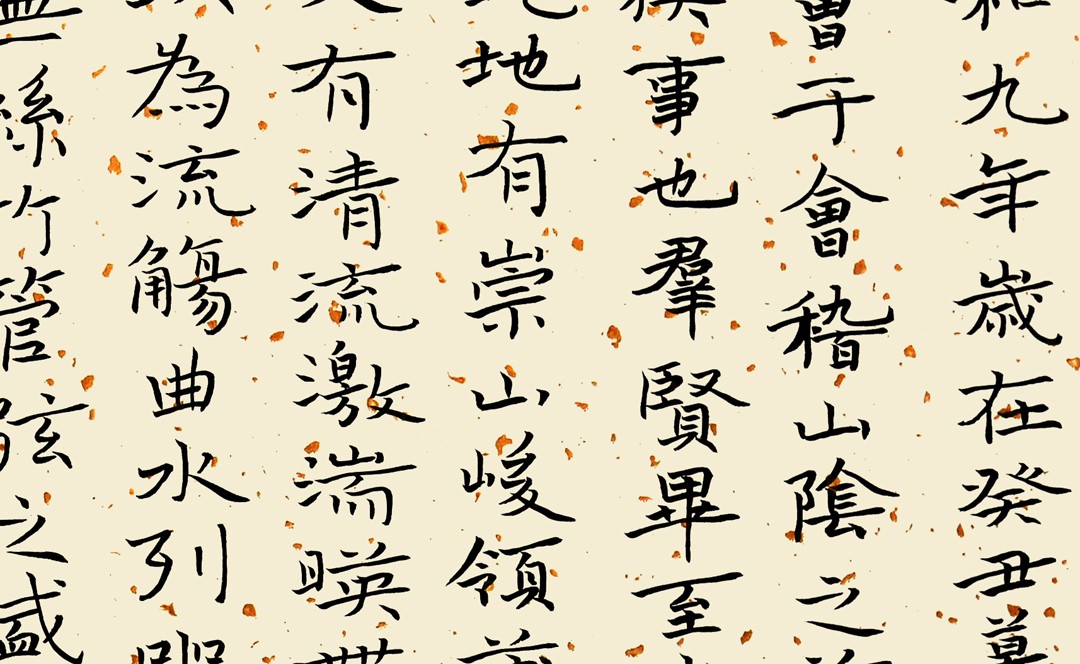 和九年歲在癸丑暮
會于會稽山陰之
禊事也羣賢畢至
地有崇山峻領茂
有清流激湍暎帶
為流觴曲水列
絲竹管弦之盛